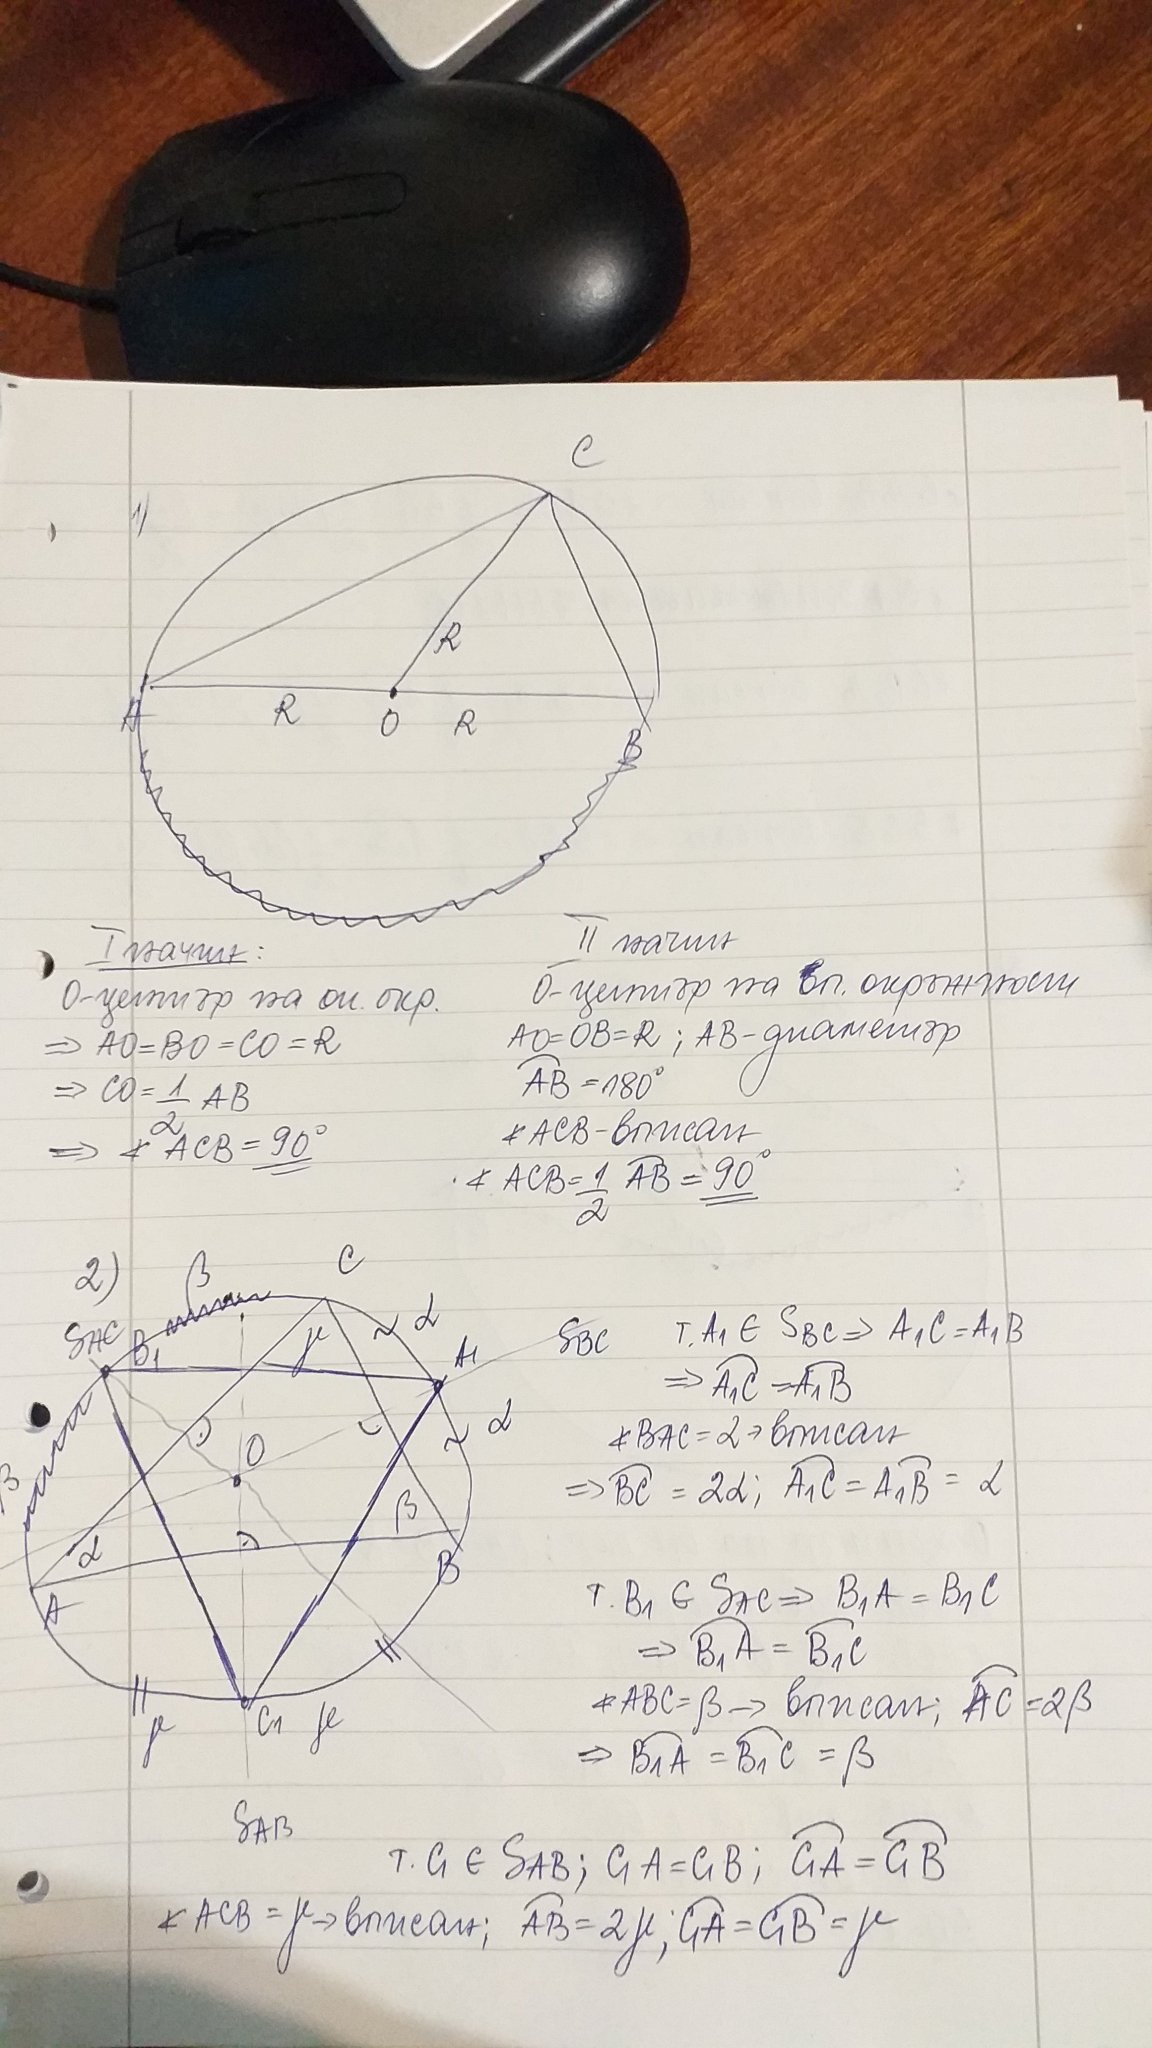 1)
C
R
A
R
O
R
B
I начин:
О-център на оп. окр.
⇒ AO=BO=CO=R
⇒ CO=1/2 AB
⇒ ∢ ACB=90°
II начин
О-център на оп. окръжности
AO=OB=R; AB-диаметър
A͡B=180°
∢ACB-вписан
∢ ACB=1/2 A͡B = 90°
2)
β
C
SAC
B1
γ
~ α
A1
SBC
~ α
O
β
β
α
A
B
γ
C1
γ
SAB
т.A1 ∈ SBC ⇒ A1C=A1B
⇒ A͡1C=A͡1B
∢BAC=α→вписан
⇒ B͡C = 2α; A͡1C = A͡1B = α
т.B1 ∈ SAC ⇒ B1A=B1C
⇒ B͡1A = B͡1C
∢ABC=β→ вписан; A͡C=2β
⇒ B͡1A=B͡1C = β
т. C1 ∈ SAB; C1A=C1B; C͡1A=C͡1B
∢ ACB=γ→вписан; A͡B=2γ; C͡1A=C͡1B=γ